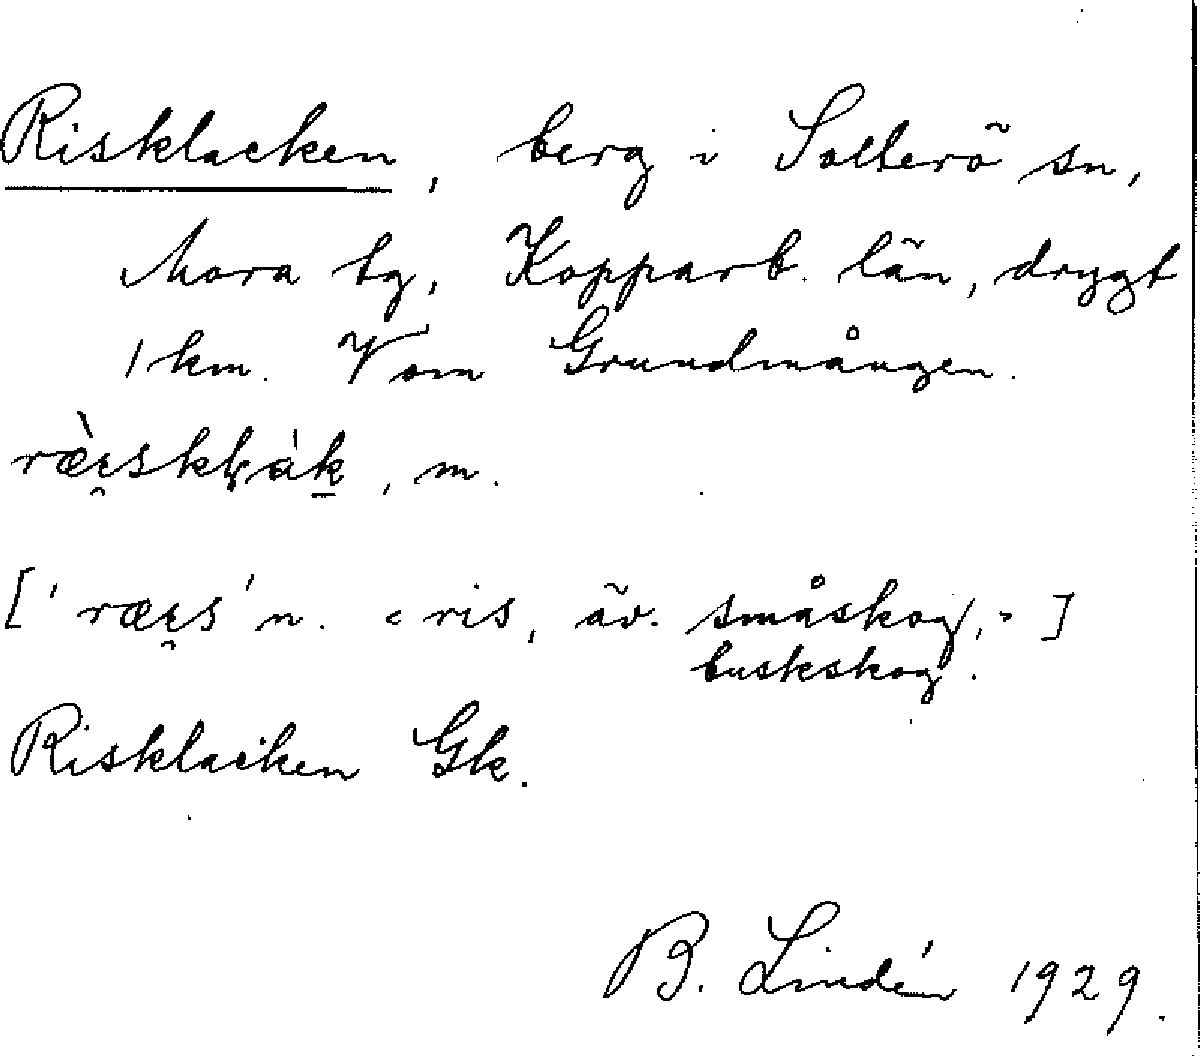 Risklacken, berg i Sollerö sn,
Mora tg, Kopparb. län, drygt
1 km. V om Grundmången.
ræ̀ɩ̯sklàk, m.
['ræɩ̯s' n. «ris, äv. småskog,»]
buskskog.
Risklacken Gk.
B. Lindén 1929.